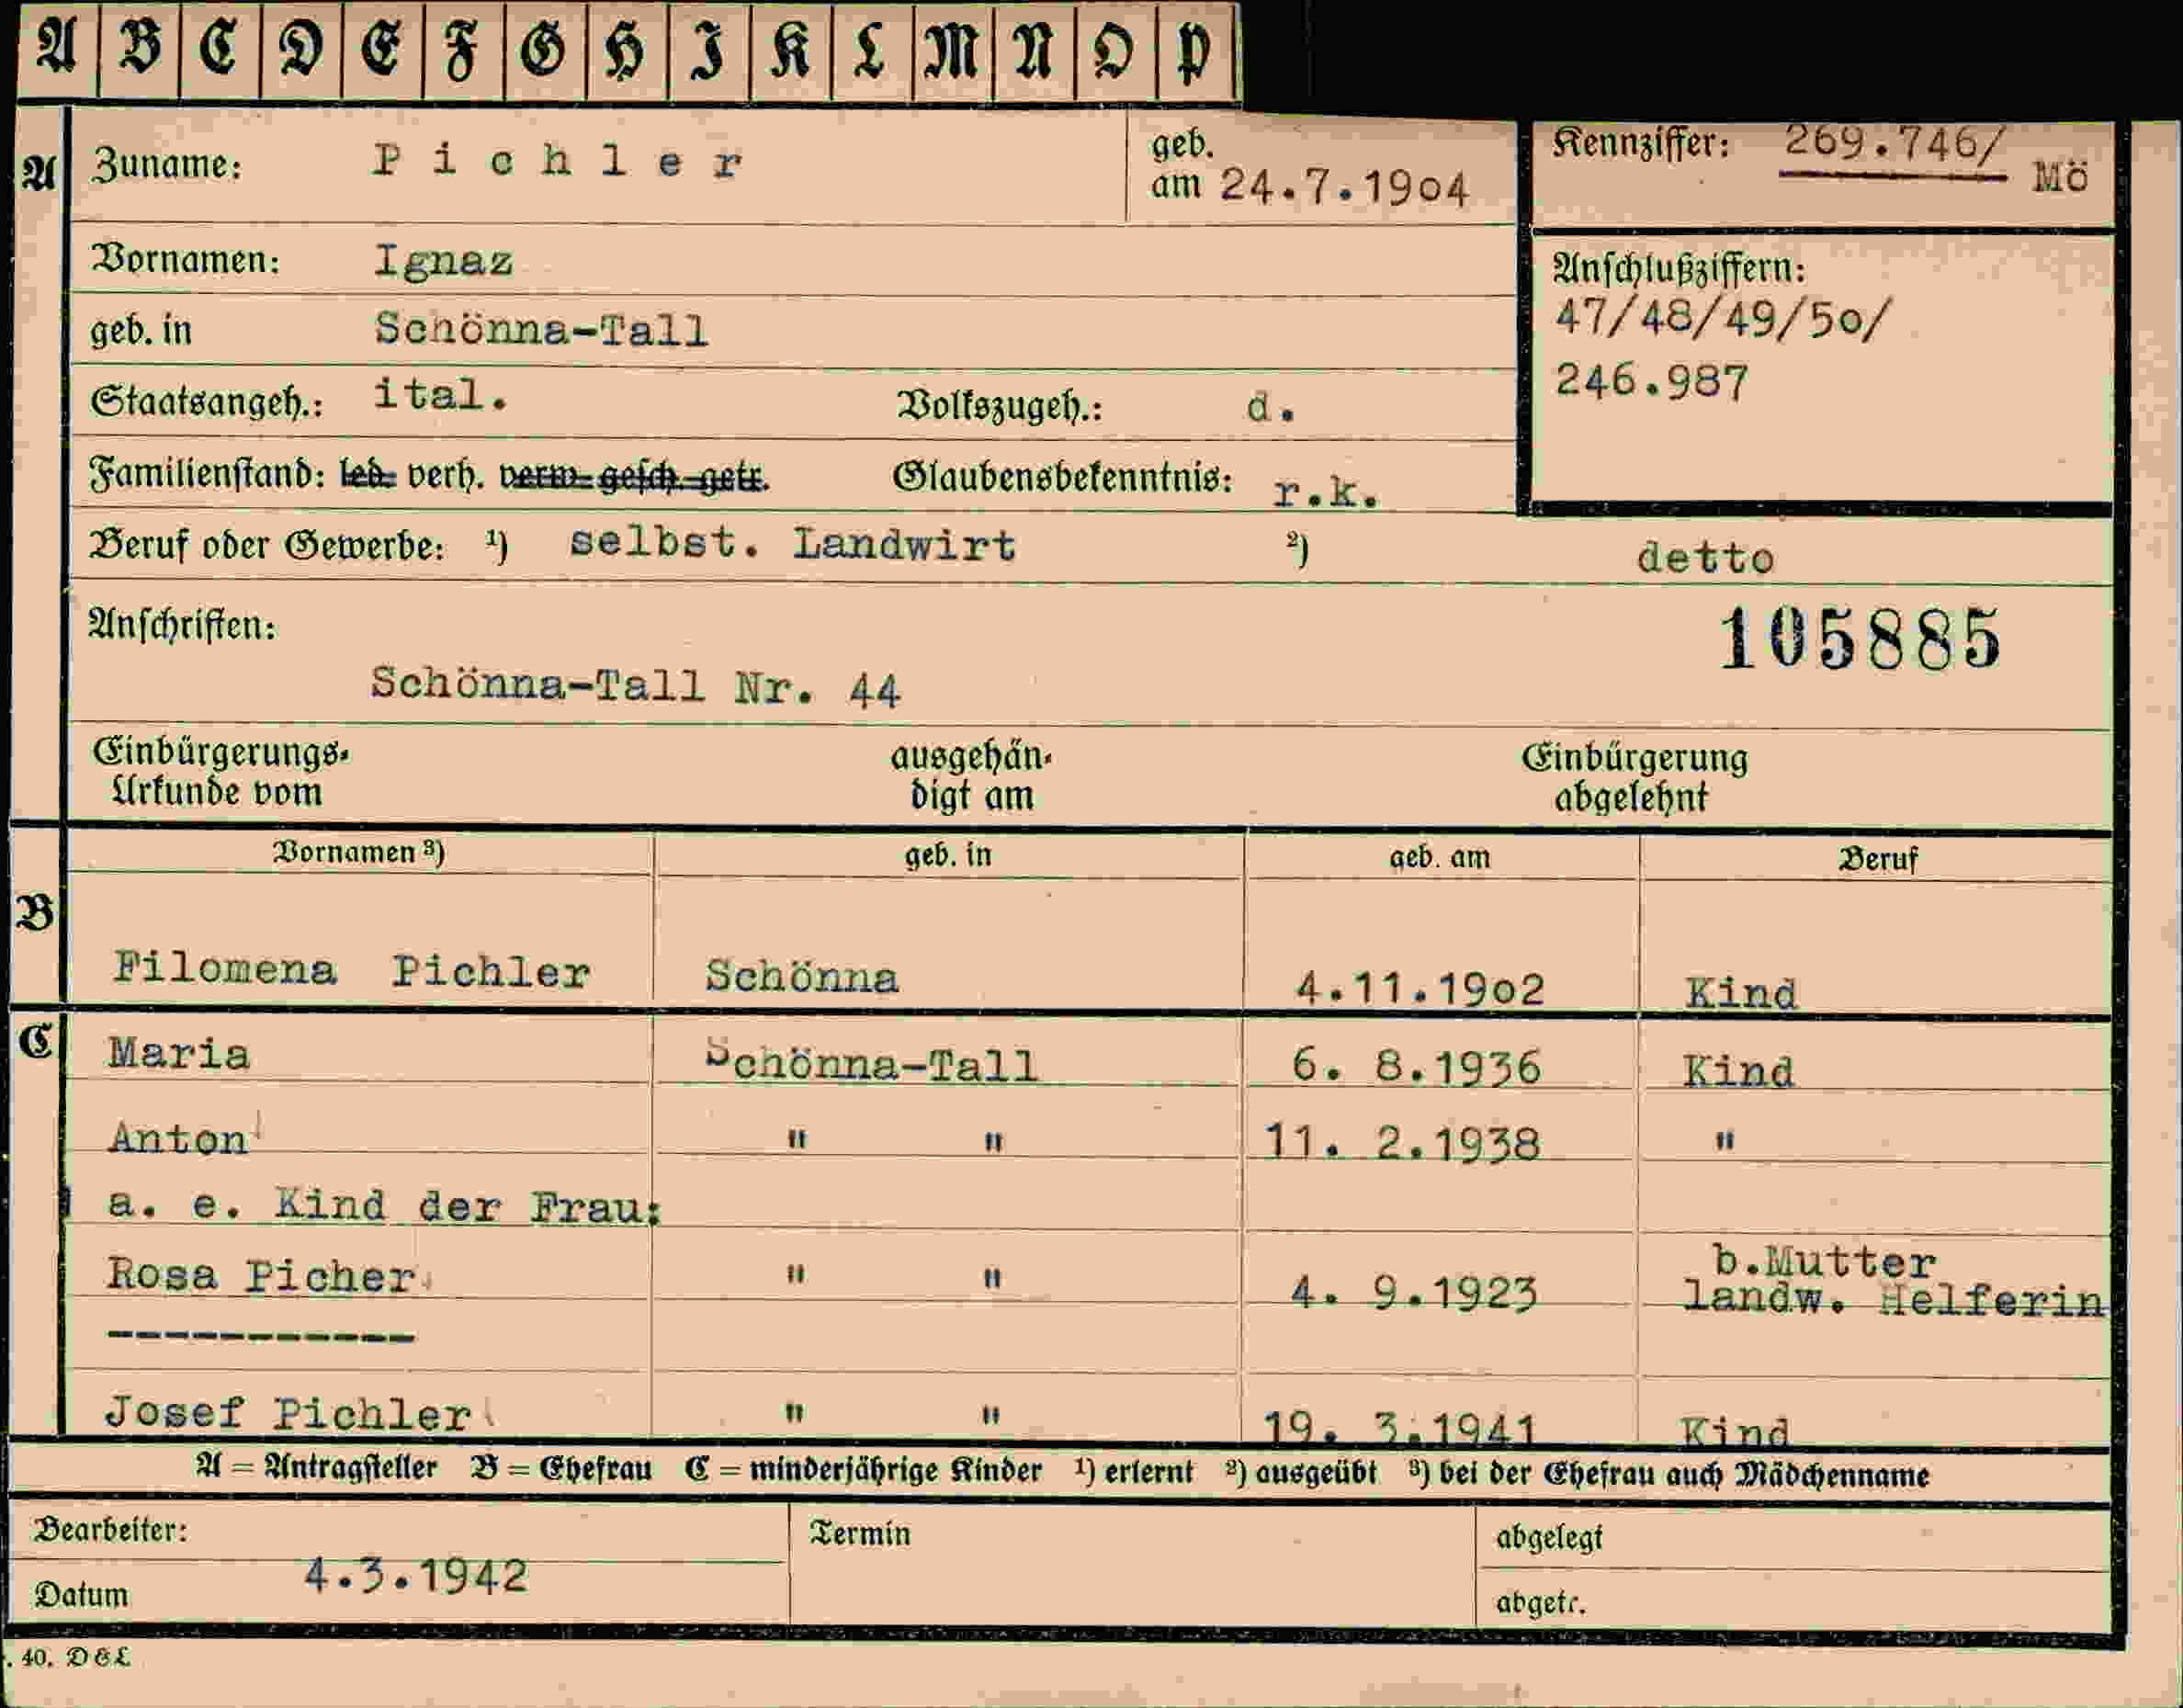 A B C D E F G H I K L M N O P
A Zuname: Pichler geb. am 24.7.1904 Kennziffer: 269.746/ Mö
Vornamen: Ignaz
geb. in Schönna-Tall
Anschlußziffern:
47/48/49/50/
246.987
Staatsangeh.: ital. Volkszugeh.: d.
Familienstand: led. verh. verw. gesch. getr. Glaubensbekenntnis: r.k.
Beruf oder Gewerbe: ¹) selbst. Landwirt ²) detto
Anschriften: 105885
Schönna-Tall Nr. 44
Einbürgerungs- ausgehän- Einbürgerung
Urkunde vom digt am abgelehnt
Vornamen ³) geb. in geb. am Beruf
B
Filomena Pichler Schönna 4.11.1902 Kind
C Maria Schönna-Tall 6. 8.1936 Kind
Anton " " 11. 2.1938 "
a. e. Kind der Frau:
b.Mutter
Rosa Picher " " 4. 9.1923 landw. Helferin
-----------
Josef Pichler " " 19. 3.1941 Kind
A = Antragsteller B = Ehefrau C = minderjährige Kinder ¹) erlernt ²) ausgeübt ³) bei der Ehefrau auch Mädchenname
Bearbeiter: Termin abgelegt
4.3.1942
Datum abgetr.
. 40. D&L